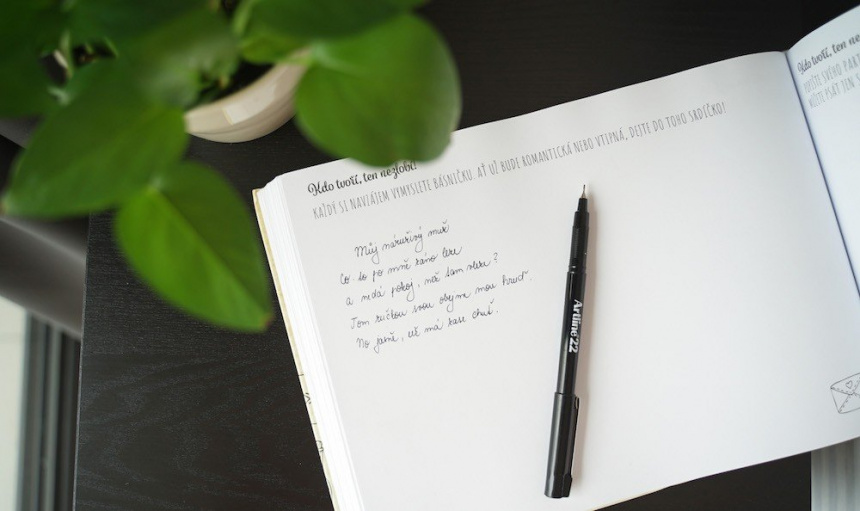 Kdo tvoří, ten nezlobí!
KAŽDÝ SI NAVZÁJEM VYMYSLETE BÁSNIČKU. AŤ UŽ BUDE ROMANTICKÁ NEBO VTIPNÁ, DEJTE DO TOHO SRDÍČKO!
Můj náruživý muž
Co-to po mně ráno leze
a nedá pokoj, než sám
Jem ručkou svou obejme mou hruď.
No jasně, už má zase chuť.
Artline 22
Kdo tvoří, ten ne
SVÉHO PART
MŮŽETE PSÁT JEN